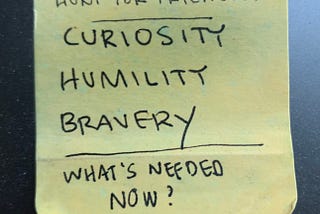 HUNT FOR
CURIOSITY
HUMILITY
BRAVERY
WHAT'S NEEDED
NOW?